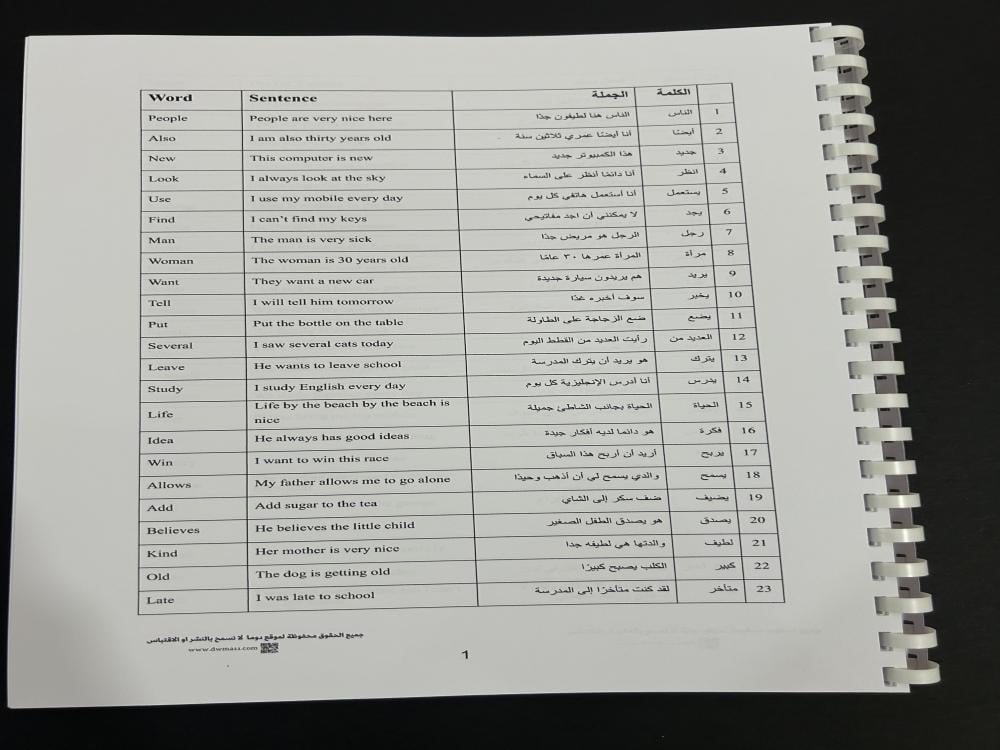 Word Sentence الجملة الكلمة
People People are very nice here الناس هنا لطيفون جدًا الناس 1
Also I am also thirty years old أنا أيضًا عمري ثلاثين سنة أيضًا 2
New This computer is new هذا الكمبيوتر جديد جديد 3
Look I always look at the sky أنا دائمًا أنظر على السماء انظر 4
Use I use my mobile every day أنا أستعمل هاتفي كل يوم يستعمل 5
Find I can't find my keys لا يمكنني أن اجد مفاتيحي يجد 6
Man The man is very sick الرجل هو مريض جدًا رجل 7
Woman The woman is 30 years old المرأة عمرها ٣٠ عامًا مرأة 8
Want They want a new car هم يريدون سيارة جديدة يريد 9
Tell I will tell him tomorrow سوف أخبره غدًا يخبر 10
Put Put the bottle on the table ضع الزجاجة على الطاولة يضع 11
Several I saw several cats today رأيت العديد من القطط اليوم العديد من 12
Leave He wants to leave school هو يريد أن يترك المدرسة يترك 13
Study I study English every day أنا أدرس الإنجليزية كل يوم يدرس 14
Life Life by the beach by the beach is الحياة بجانب الشاطئ جميلة الحياة 15
nice
Idea He always has good ideas هو دائما لديه أفكار جيدة فكرة 16
Win I want to win this race أريد أن أربح هذا السباق يربح 17
Allows My father allows me to go alone والدي يسمح لي أن أذهب وحيدًا يسمح 18
Add Add sugar to the tea ضف سكر إلى الشاي يضيف 19
Believes He believes the little child هو يصدق الطفل الصغير يصدق 20
Kind Her mother is very nice والدتها هي لطيفه جدا لطيف 21
Old The dog is getting old الكلب يصبح كبيرًا كبير 22
Late I was late to school لقد كنت متأخرًا إلى المدرسة متأخر 23
جميع الحقوق محفوظة لموقع دوما لا نسمح بالنشر او الاقتباس
www.dwma11.com
1